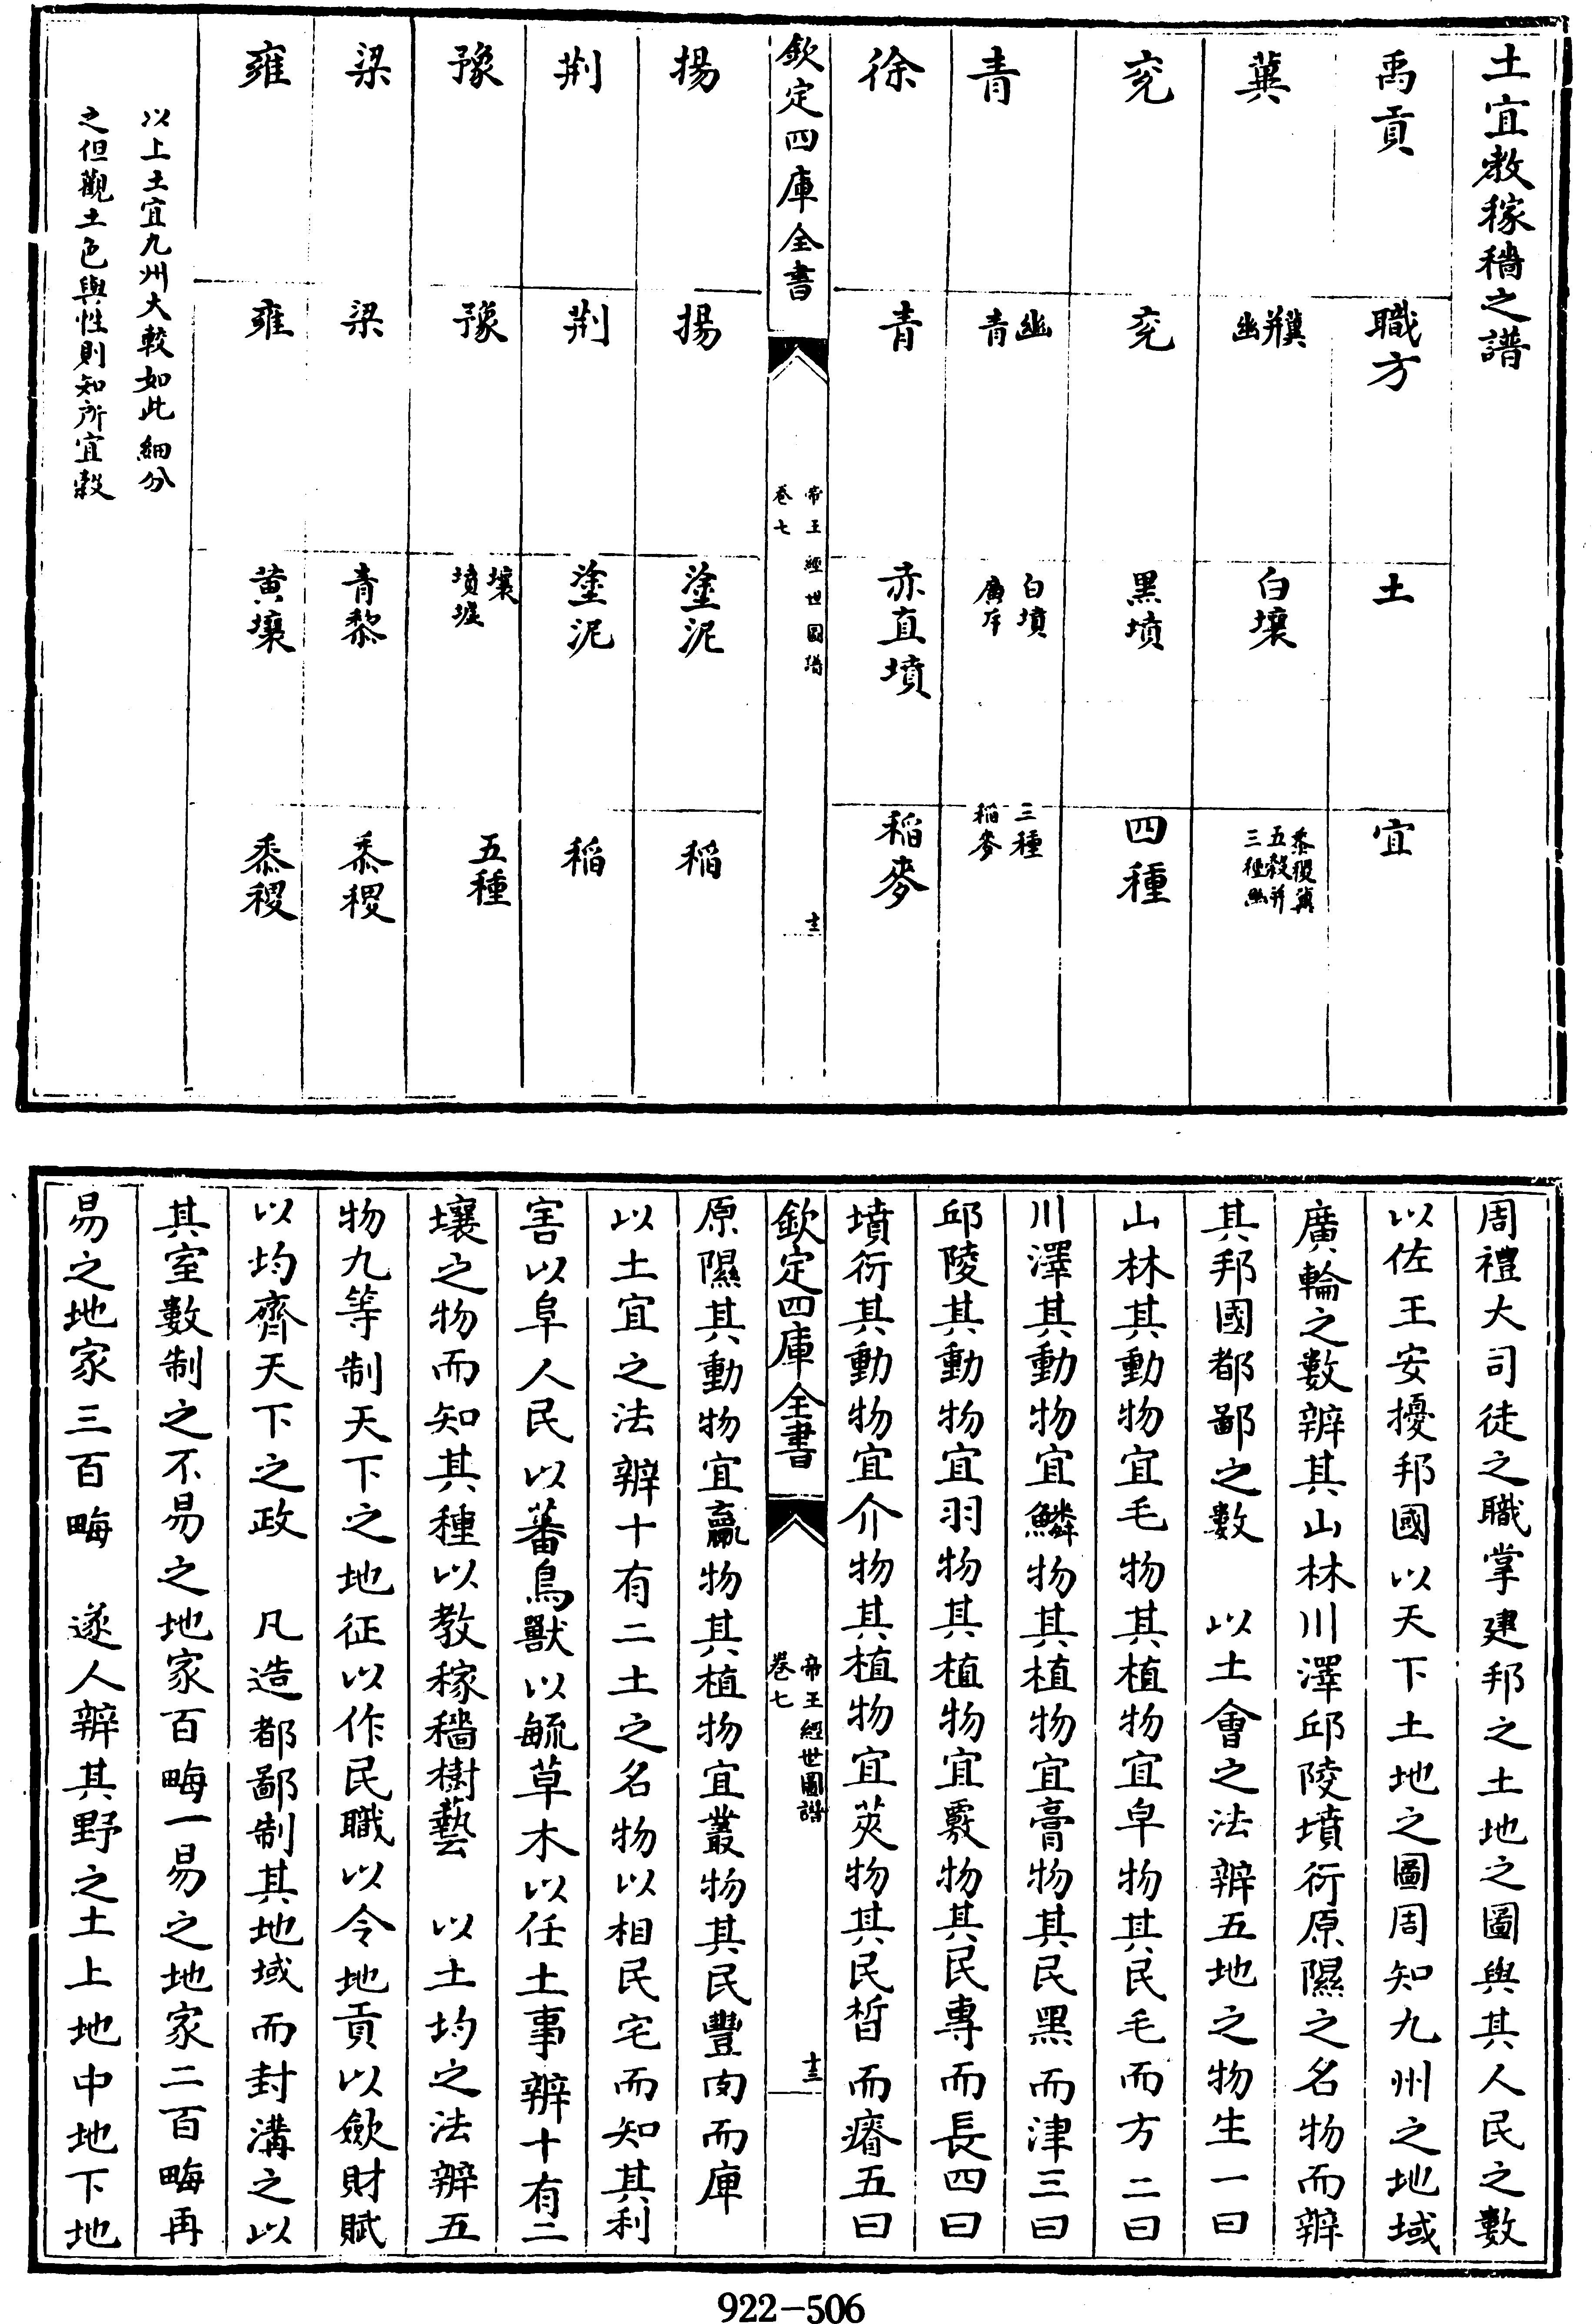 土宜教稼穡之譜
禹貢 職方 土 宜
冀 冀并幽 白壤 黍稷冀五穀并三種幽
兖 兖 黑墳 四種
青 幽青 白墳廣斥 三種稻麥
徐 青 赤直墳 稻麥
欽定四庫全書 帝王經世圖譜 卷七 十三
揚 揚 塗泥 稻
荆 荆 塗泥 稻
豫 豫 壤墳壚 五種
梁 梁 青黎 黍稷
雍 雍 黄壤 黍稷
以上土宜九州大較如此細分
之但觀土色與性則知所宜穀
周禮大司徒之職掌建邦之土地之圖與其人民之數
以佐王安擾邦國以天下土地之圖周知九州之地域
廣輪之數辨其山林川澤邱陵墳衍原隰之名物而辨
其邦國都鄙之數 以土會之法辨五地之物生一曰
山林其動物宜毛物其植物宜皁物其民毛而方二曰
川澤其動物宜鱗物其植物宜膏物其民黑而津三曰
邱陵其動物宜羽物其植物宜覈物其民專而長四曰
墳衍其動物宜介物其植物宜莢物其民皙而瘠五曰
欽定四庫全書 帝王經世圖譜 卷七 十三
原隰其動物宜臝物其植物宜叢物其民豐肉而庳
以土宜之法辨十有二土之名物以相民宅而知其利
害以阜人民以蕃鳥獸以毓草木以任土事辨十有二
壤之物而知其種以教稼穡樹藝 以土均之法辨五
物九等制天下之地征以作民職以令地貢以斂財賦
以均齊天下之政 凡造都鄙制其地域而封溝之以
其室數制之不易之地家百畮一易之地家二百畮再
易之地家三百畮 遂人辨其野之土上地中地下地
922-506